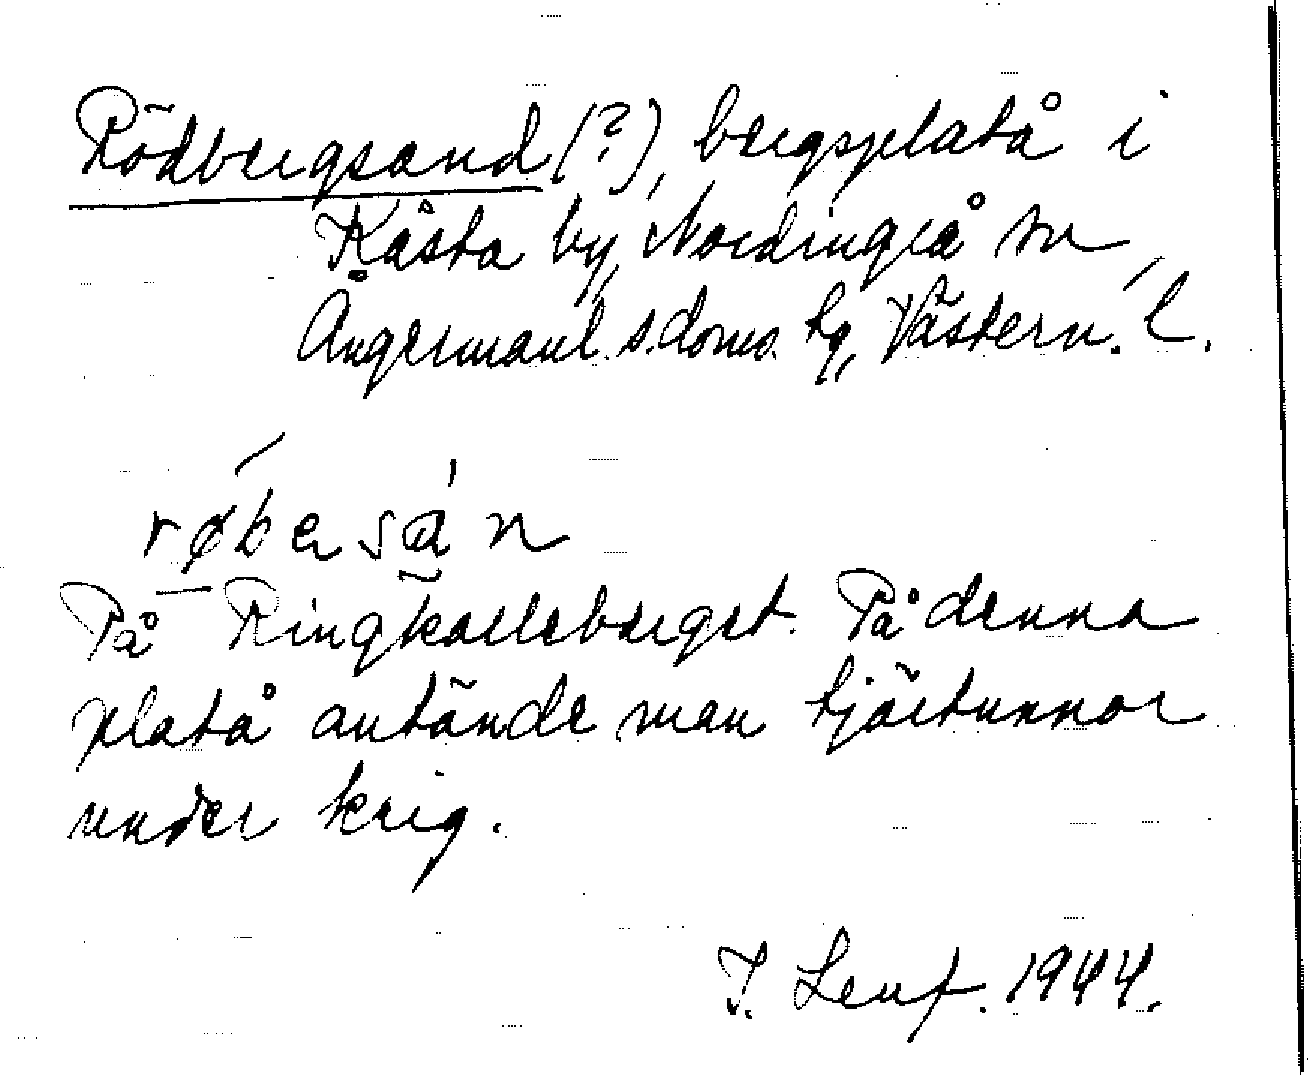 Rödbergsand (?), bergsplatå i
Kåsta by, Nordingrå sn,
Ångermanl. s. doms. tg, Västern. l.
røbersán
På Ringkalleberget. På denna
platå antände man tjärtunnor
under krig.
I. Lenf. 1944.